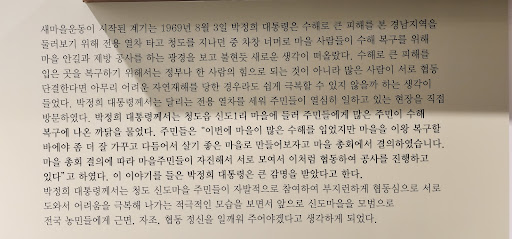 새마을운동이 시작된 계기는 1969년 8월 3일 박정희 대통령은 수해로 큰 피해를 본 경남지역을
둘러보기 위해 전용 열차 타고 청도를 지나던 중 차창 너머로 마을 사람들이 수해 복구를 위해
마을 안길과 제방 공사를 하는 광경을 보고 불현듯 새로운 생각이 떠올랐다. 수해로 큰 피해를
입은 곳을 복구하기 위해서는 정부나 한 사람의 힘으로 되는 것이 아니라 많은 사람이 서로 협동
단결한다면 아무리 어려운 자연재해를 당한 경우라도 쉽게 극복할 수 있지 않을까 하는 생각이
들었다. 박정희 대통령께서는 달리는 전용 열차를 세워 주민들이 열심히 일하고 있는 현장을 직접
방문하였다. 박정희 대통령께서는 청도읍 신도1리 마을에 들러 주민들에게 많은 주민이 수해
복구에 나온 까닭을 물었다. 주민들은 “이번에 마을이 많은 수해를 입었지만 마을을 이왕 복구할
바에야 좀 더 잘 가꾸고 다듬어서 살기 좋은 마을로 만들어보자고 마을 총회에서 결의하였습니다.
마을 총회 결의에 따라 마을주민들이 자진해서 서로 모여서 이처럼 협동하여 공사를 진행하고
있다”고 하였다. 이 이야기를 들은 박정희 대통령은 큰 감명을 받았다고 한다.
박정희 대통령께서는 청도 신도마을 주민들이 자발적으로 참여하여 부지런하게 협동심으로 서로
도와서 어려움을 극복해 나가는 적극적인 모습을 보면서 앞으로 신도마을을 모범으로
전국 농민들에게 근면, 자조, 협동 정신을 일깨워 주어야겠다고 생각하게 되었다.